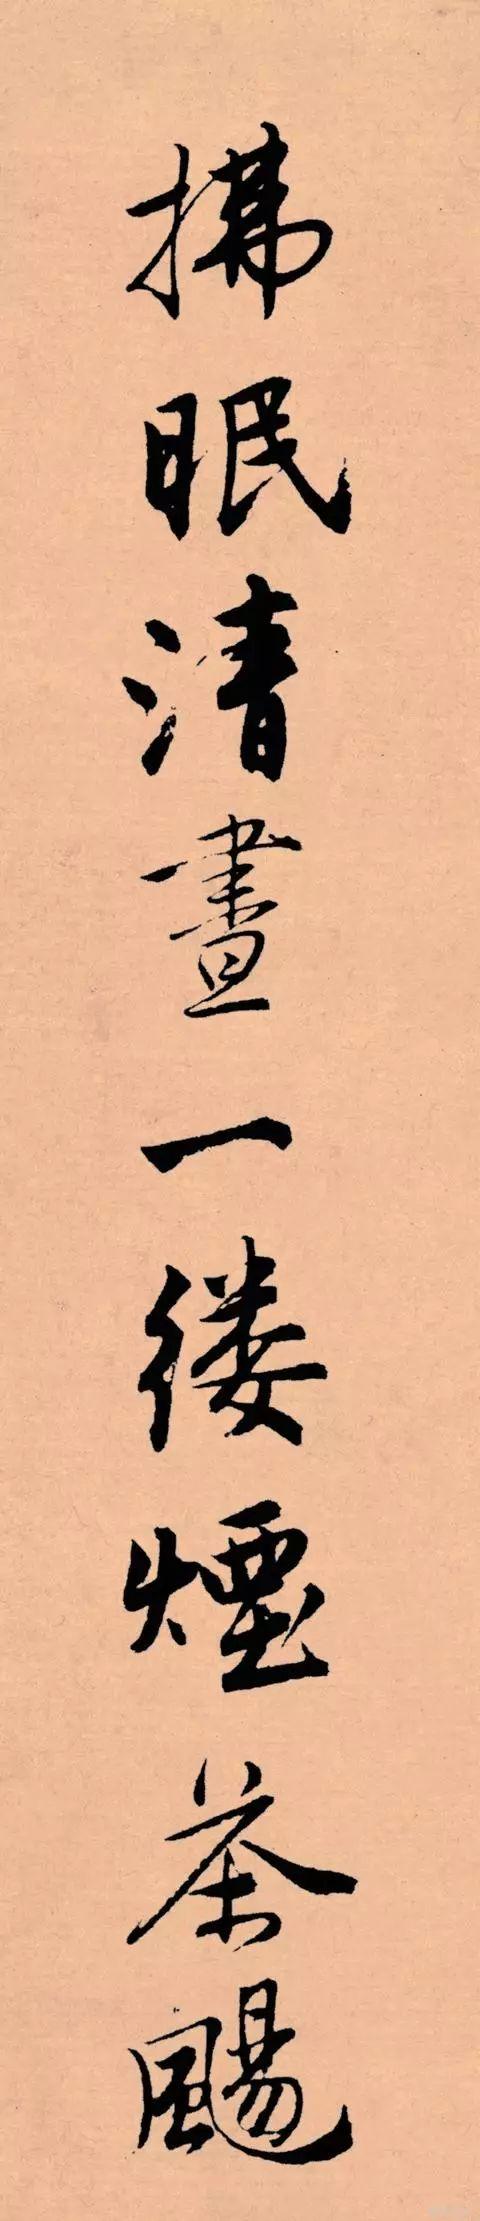 眠清晝一縷煙茶颺